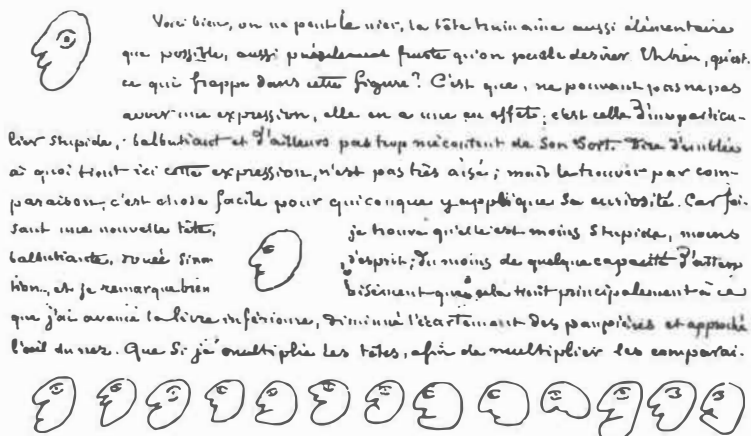 Voici bien, on ne peut le nier, la tête humaine aussi élémentaire
que possible, aussi puérilement fruste qu'on puisse le desirer. Eh bien, qu'est-
ce qui frappe dans cette figure? C'est que, ne pouvant pas ne pas
avoir une expression, elle en a une en effet; c'est celle d'un particu-
lier stupide, balbutiant et d'ailleurs pas trop mécontent de son sort. Dire d'emblée
à quoi tient ici cette expression, n'est pas très aisé; mais la trouver par com-
paraison, c'est chose facile pour quiconque y applique sa curiosité. Car fai-
sant une nouvelle tête, je trouve qu'elle est moins stupide, moins
balbutiante, douée sinon d'esprit, du moins de quelque capacité d'atten
tion, et je remarque bien aisément que cela tient principalement à ce
que j'ai avancé la lèvre inférieure, diminué l'écartement des paupières et approché
l'œil du nez. Que si je multiplie les têtes, afin de multiplier les comparai-